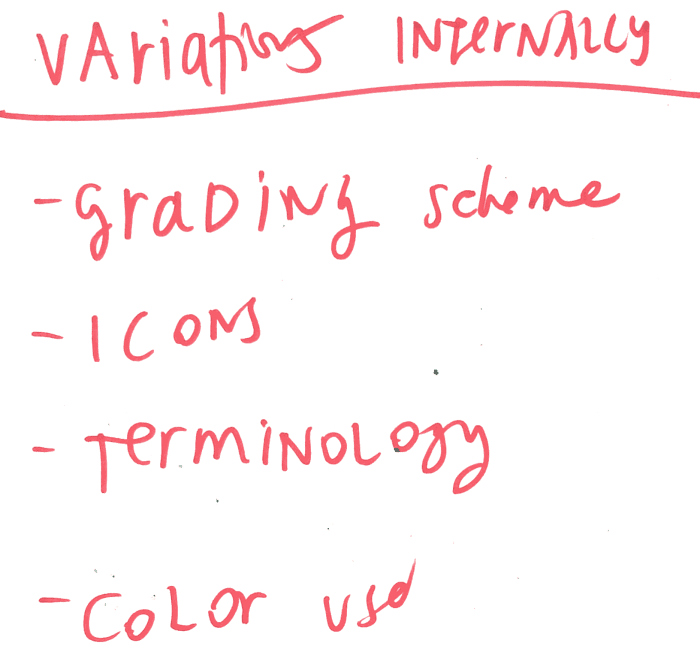 VAriations INTerNALLy
- grADiNg scheme
- ICONS
- TerMiNOLOgy
- COLOr used